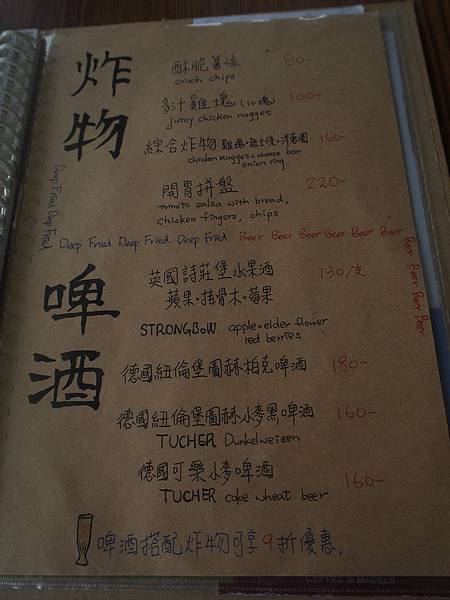 炸物
酥脆薯條 80-
cruch chips
多汁雞塊(10塊) 100-
jurcy chicken nugget
綜合炸物 雞塊·起士條·洋蔥圈 160-
chicken nugget·cheese bar
onion ring
開胃拼盤 220-
tomato salsa with bread,
chicken fingers, chips
Deep Fried Deep Fried
Deep Fried Deep Fried Deep Fried Beer Beer Beer Beer Beer Beer
Beer Beer Beer Beer
啤酒
英國詩莊堡水果酒 130/支
蘋果·接骨木·莓果
STRONGBOW. apple·elder flower
red berries
德國紐倫堡圖赫柏克啤酒 180-
德國紐倫堡圖赫小麥黑啤酒 160-
TUCHER Dunkelweizen
德國可樂小麥啤酒 160-
TUCHER coke wheat beer
啤酒搭配炸物可享9折優惠。
COFFEE & BAGELS